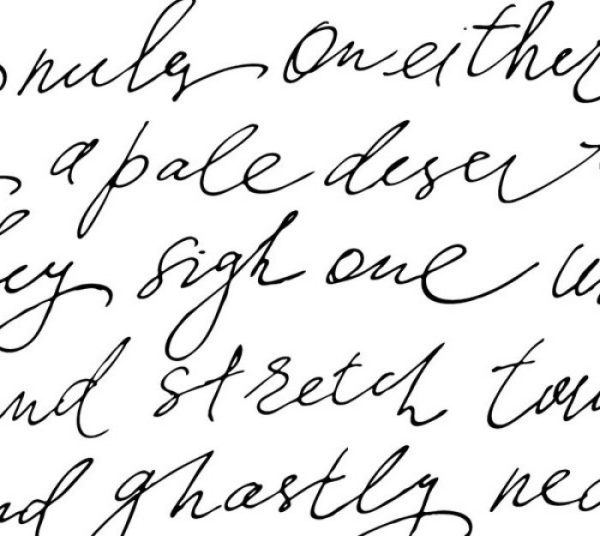 on either
a pale desert
ey sigh one u
nd stretch tow
nd ghastly nec